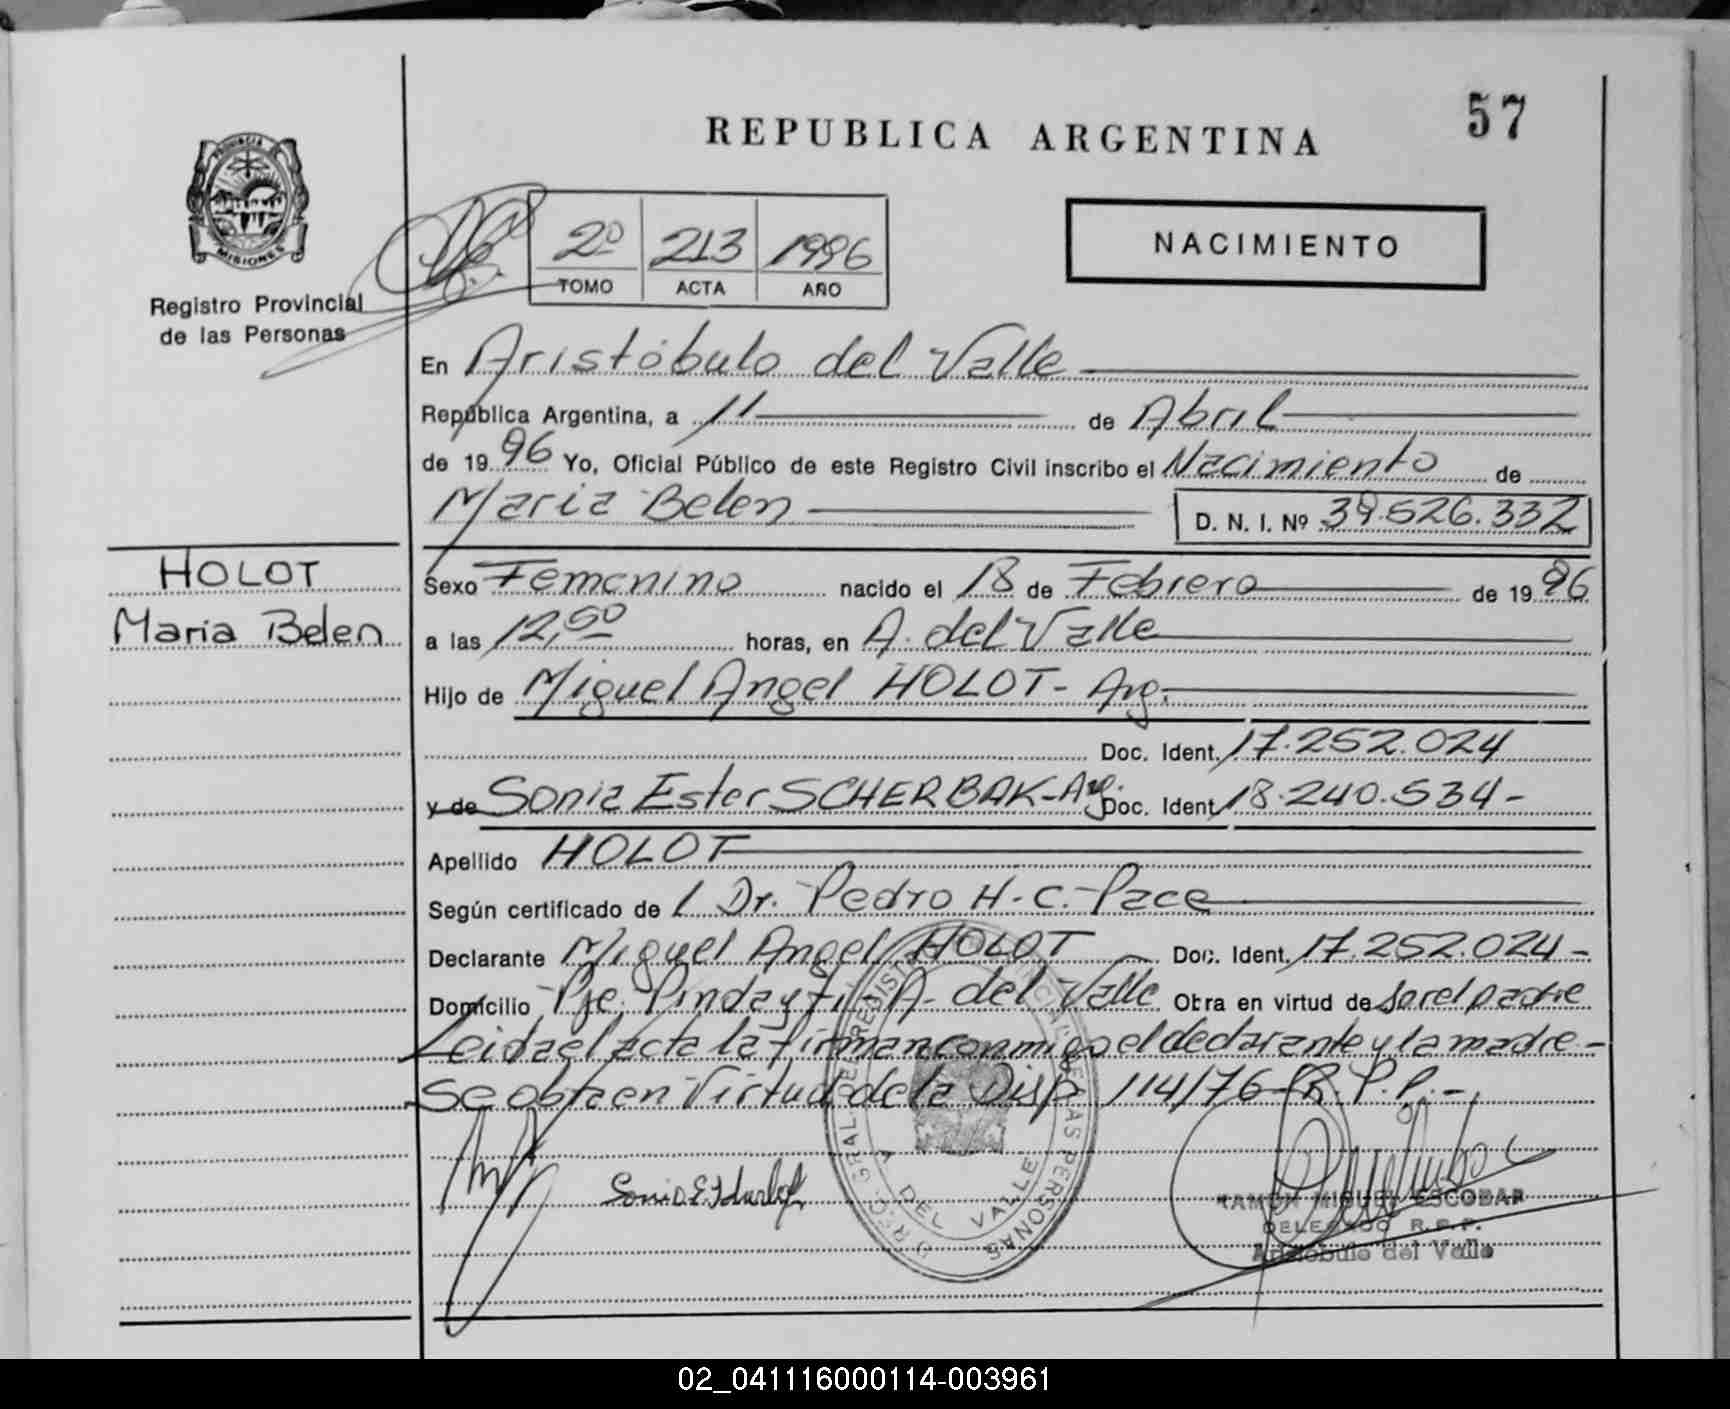 57
REPUBLICA ARGENTINA
PROVINCIA DE
MISIONES
Registro Provincial
de las Personas
2º 213 1996
TOMO ACTA AÑO
NACIMIENTO
En Aristóbulo del Valle
República Argentina, a 11 de Abril
de 1996 Yo, Oficial Público de este Registro Civil inscribo el Nacimiento de
Maria Belen D. N. I. Nº 39.526.332
HOLOT
Maria Belen
Sexo Femenino nacido el 18 de Febrero de 1996
a las 12,50 horas, en A. del Valle
Hijo de Miguel Angel HOLOT - Arg.
Doc. Ident. 17.252.024
y de Sonia Ester SCHERBAK - Arg. Doc. Ident 18.240.534 -
Apellido HOLOT
Según certificado de l Dr. Pedro H. C. Pace
Declarante Miguel Angel HOLOT Doc. Ident. 17.252.024 -
Domicilio Pje. Pindayti A. del Valle Obra en virtud de ser el padre
Leida el acta la firman conmigo el declarante y la madre -
se obra en Virtud de la Disp. 114/76 - R. P. P. -
A DEL VALLE
RAMON MIGUEL ESCOBAR
DELEGADO R.P.P.
Aristobulo del Valle
02_041116000114-003961